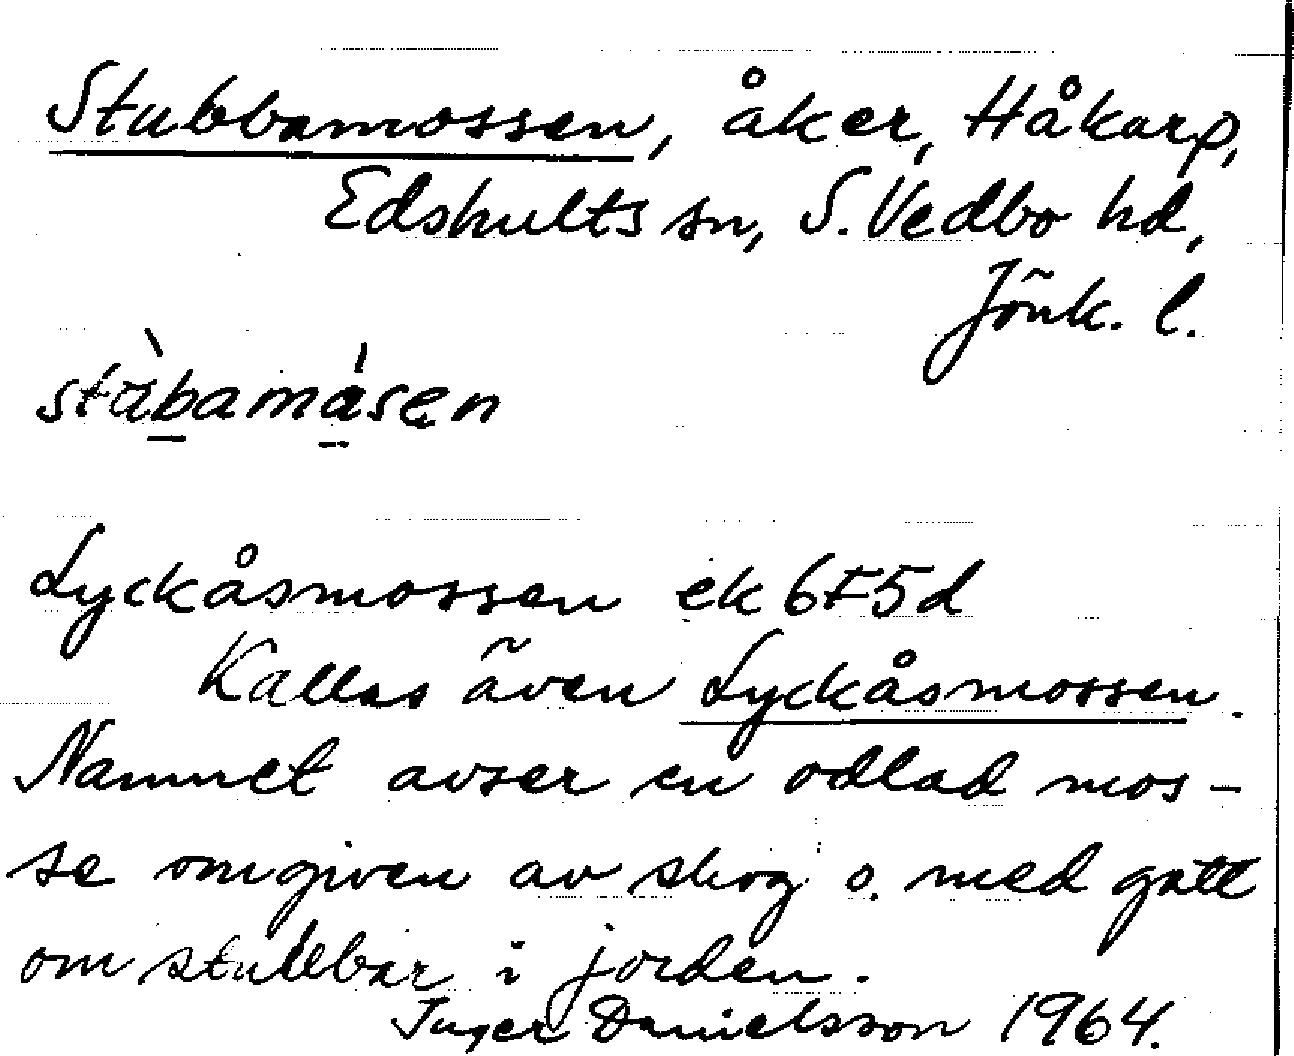 Stubbamossen, åker, Håkarp,
Edshults sn, S. Vedbo hd,
Jönk. l.
Lyckåsmossen ek 6F5d
Kallas även Lyckåsmossen.
Namnet avser en odlad mos-
se omgiven av skog o. med gott
om stubbar i jorden.
Inger Danielsson 1964.